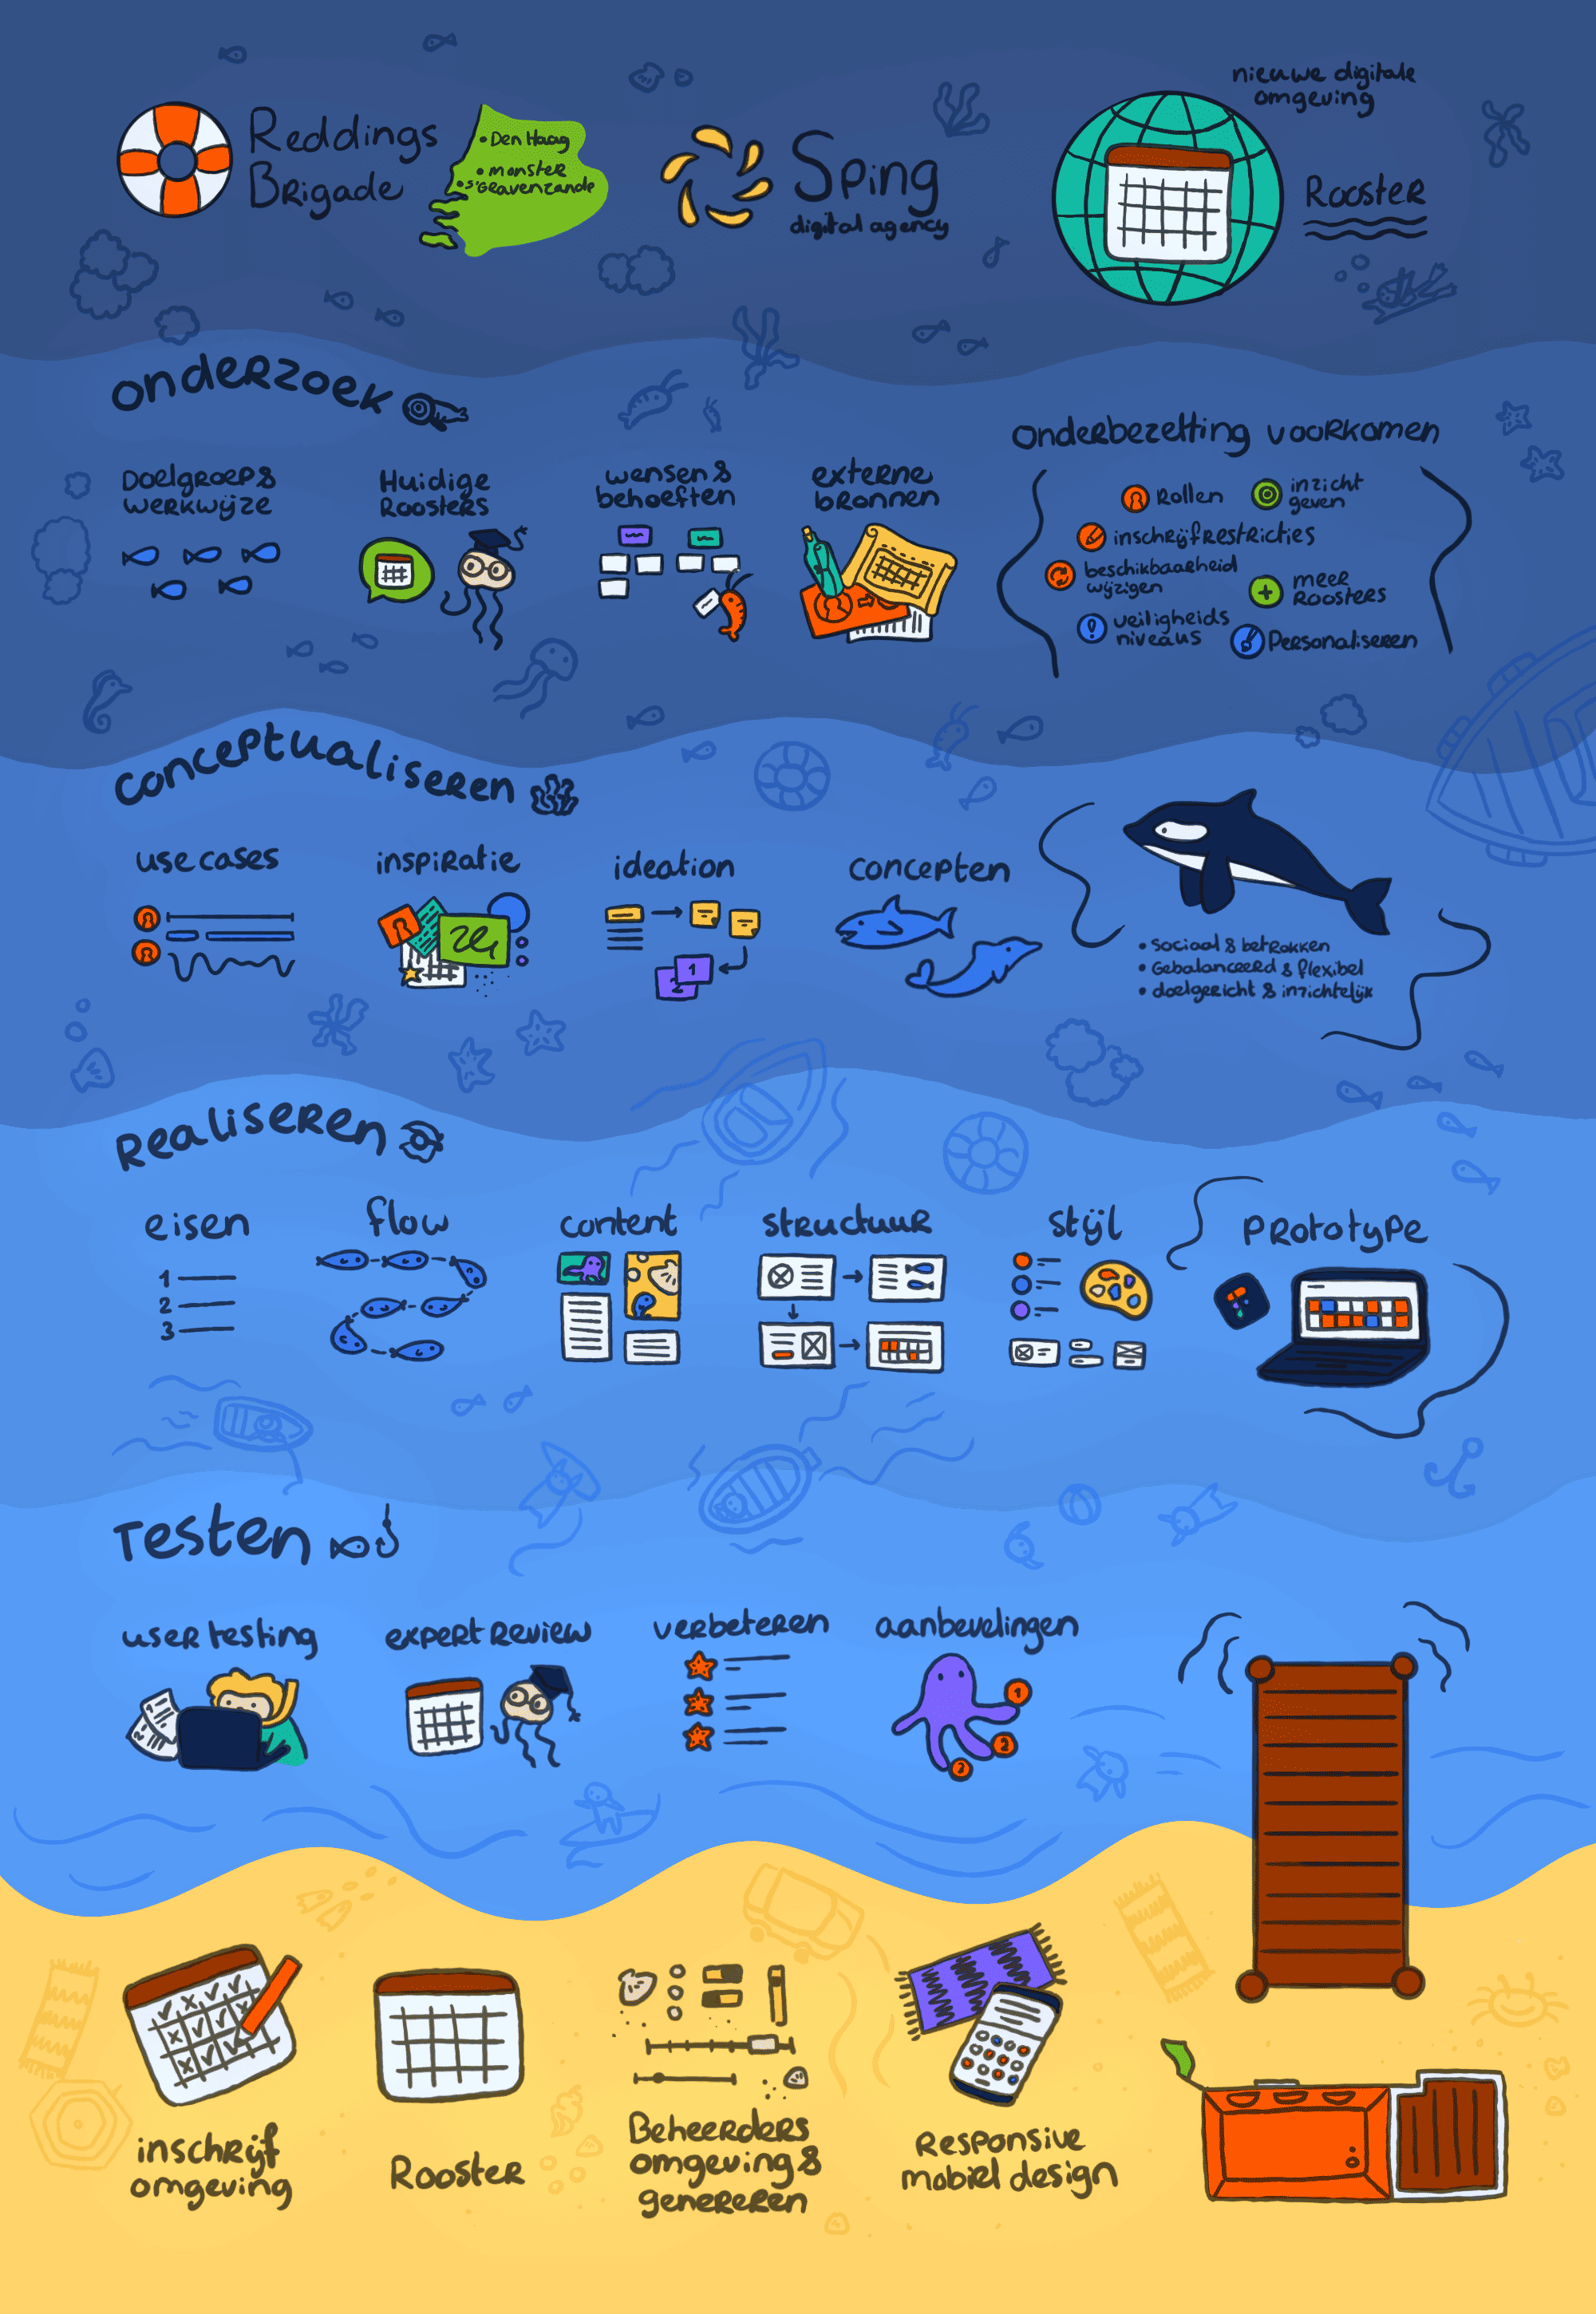 Reddings
Brigade
• Den Haag
• monster
• s'Gravenzande
Sping
digital agency
nieuwe digitale
omgeving
Rooster
onderzoek
Doelgroep &
werkwijze
Huidige
Roosters
wensen &
behoeften
externe
bronnen
onderbezetting voorkomen
Rollen
inzicht
geven
inschrijfrestricties
beschikbaarheid
wijzigen
meer
roosters
veiligheids
niveaus
Personaliseren
conceptualiseren
use cases
inspiratie
ideation
1
2
concepten
• Sociaal & betrokken
• Gebalanceerd & flexibel
• doelgericht & inzichtelijk
Realiseren
eisen
1
2
3
flow
content
structuur
stijl
Prototype
Testen
user testing
1
2
expert review
verbeteren
aanbevelingen
1
2
3
inschrijf
omgeving
Rooster
Beheerders
omgeving &
genereren
Responsive
mobiel design